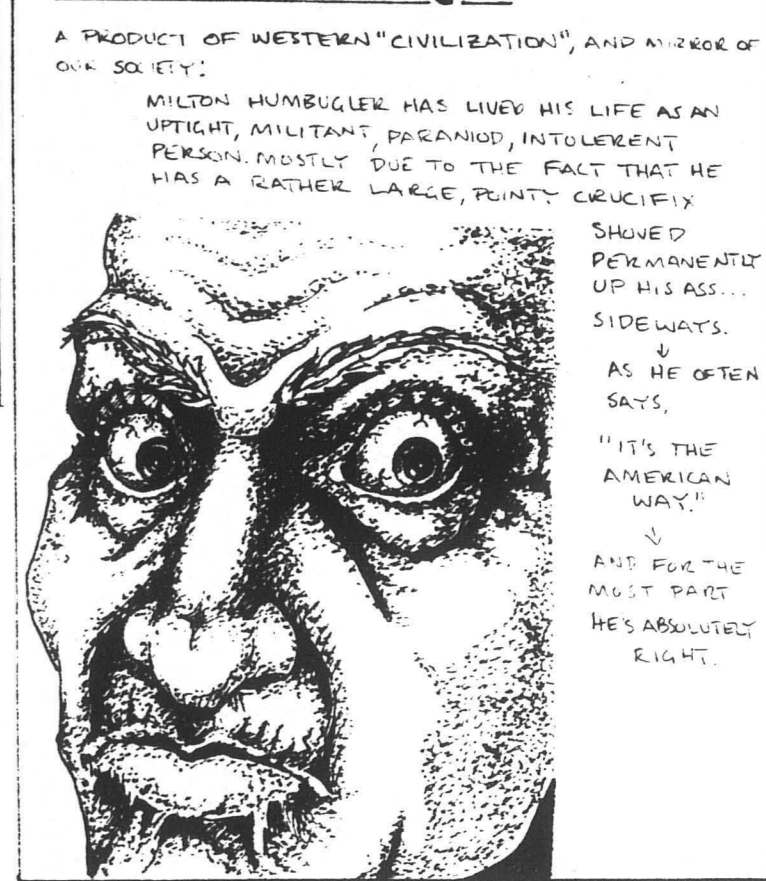 A PRODUCT OF WESTERN "CIVILIZATION", AND MIRROR OF
OUR SOCIETY:
MILTON HUMBUGLER HAS LIVED HIS LIFE AS AN
UPTIGHT, MILITANT, PARANIOD, INTOLERENT
PERSON. MOSTLY DUE TO THE FACT THAT HE
HAS A RATHER LARGE, POINTY CRUCIFIX
SHOVED
PERMANENTLY
UP HIS ASS...
SIDEWAYS.
↓
AS HE OFTEN
SAYS,
"IT'S THE
AMERICAN
WAY."
↓
AND FOR THE
MOST PART
HE'S ABSOLUTELY
RIGHT.